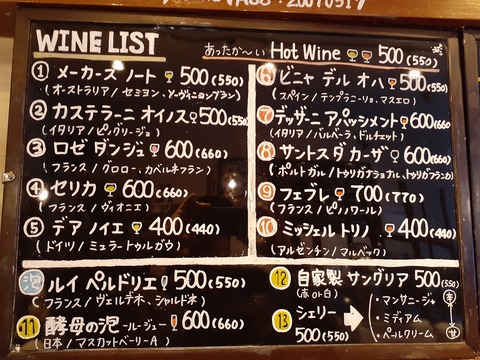 WINE LIST
あったか〜い Hot Wine 500 (550)
① メーカーズ ノート 500 (550)
(オーストラリア / セミヨン、ソーヴィニヨンブラン)
② カステラーニ オイノス 500 (550)
(イタリア / ピノグリージョ)
③ ロゼ ダンジュ 600 (660)
(フランス / グロロー、カベルネフラン)
④ セリカ 600 (660)
(フランス / ヴィオニエ)
⑤ デア ノイエ 400 (440)
(ドイツ / ミュラートゥルガウ)
⑥ ビニャ デル オハ 500 (550)
(スペイン / テンプラニーリョ、マスエロ)
⑦ テッザーニ アパッシメント 600 (660)
(イタリア / バルベーラ、ドルチェット)
⑧ サントス ダ カーザ 600 (660)
(ポルトガル / トゥリガナショナル、トゥリガフランカ)
⑨ フェブレ 700 (770)
(フランス / ピノノワール)
⑩ ミッシェル トリノ 400 (440)
(アルゼンチン / マルベック)
泡 ルイ ペルドリエ 500 (550)
(フランス / ヴェルデホ、シャルドネ)
⑪ 酵母の泡 -ルージュ- 600 (660)
(日本 / マスカットベーリーA)
⑫ 自家製 サングリア 500
(赤 or 白) (550)
⑬ シェリー
500 (550)
・マンサニージャ
・ミディアム
・ペールクリーム
辛
甘